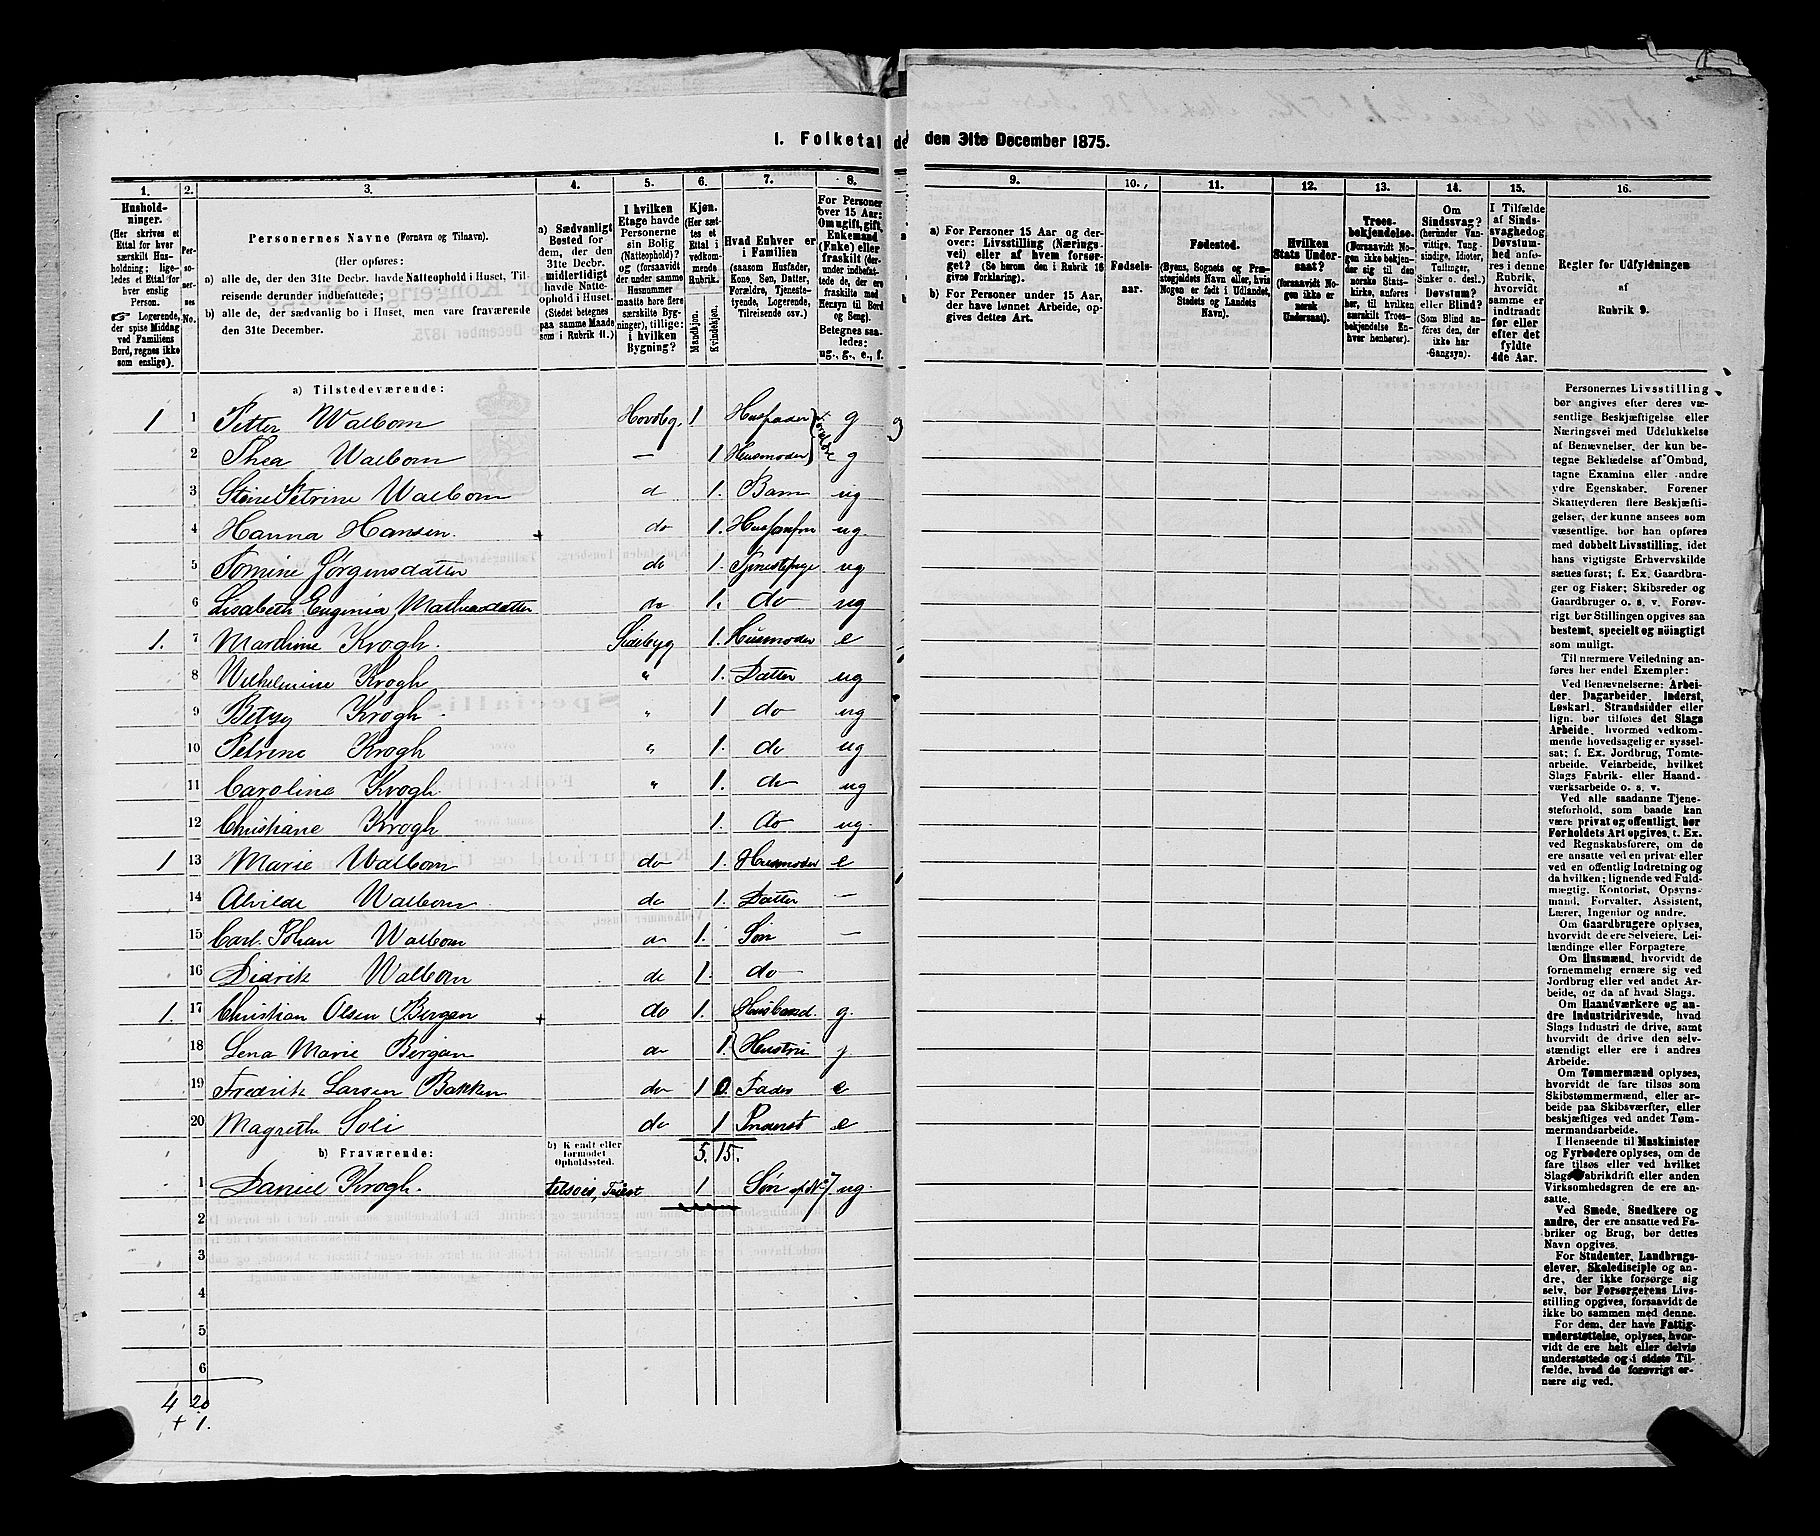 I. Folketal de
den 31te December 1875.
1. 2. 3. 4. 5. 6. 7. 8. 9. 10. 11. 12. 13. 14. 15. 16.
Hushold-
ninger.
(Her skrives et
Ettal for hver
særskilt Hus-
holdning; lige-
ledes et Ettal for
hver enslig
Person.
☞ Logerende,
der spise Middag
ved Familiens
Bord, regnes ikke
som enslige).
Per-
so-
ner-
nes
No.
Personernes Navne (Fornavn og Tilnavn).
(Her opføres:
a) alle de, der den 31te Decbr. havde Natteophold i Huset, Til-
reisende derunder indbefattede;
b) alle de, der sædvanlig bo i Huset, men vare fraværende
den 31te December.
a) Sædvanligt
Bosted for
dem, der den
31te Decbr.
midlertidigt
havde Natte-
ophold i Huset.
(Stedet betegnes
paa samme Maade
som i Rubrik 11.)
I hvilken
Etage havde
Personerne
sin Bolig
(Natteophold)?
og (forsaavidt
der under samme
Husnummer
maatte høre flere
særskilte Byg-
ninger), tillige:
i hvilken
Bygning?
Kjøn.
(Her sæt-
tes et
Ettal i
vedkom-
mende
Rubrik.)
Mandkjøn.
Kvindekjøn.
Hvad Enhver er
i Familien
(saasom Husfader,
Kone, Søn, Datter,
Forældre, Tjeneste-
tyende, Logerende,
Tilreisende osv.)
For Personer
over 15 Aar:
Om ugift, gift,
Enkemand
(Enke) eller
fraskilt (der-
under indbefat-
tede de, der
ere fraskilte
med Hensyn til Bord
og Seng).
Betegnes saa-
ledes:
ug., g., e., f.
a) For Personer 15 Aar og der-
over: Livsstilling (Nærings-
vei) eller af hvem forsør-
get? (Se herom den i Rubrik 16
givne Forklaring).
b) For Personer under 15 Aar,
der have lønnet Arbeide, op-
gives dettes Art.
Fødsels-
aar.
Fødested.
(Byens, Sognets og Præ-
stegjeldets Navn eller, hvis
Nogen er født i Udlandet,
Stedets og Landets
Navn).
Hvilken
Stats Under-
saat?
(forsaavidt No-
gen ikke er
norsk
Undersaat).
Troes-
bekjendelse.
(Forsaavidt No-
gen ikke bekjen-
der sig til den
norske Stats-
kirke, anføres
her, til hvilket
særskilt Troes-
bekjendelse En-
hver henhører).
Om
Sindssvag?
(herunder Van-
vittige, Tung-
sindige, Idioter,
Tullinger,
Sinker o. desl.)
Døvstum?
eller Blind?
(Som Blind an-
føres den, der
ikke har
Gangsyn).
I Tilfælde
af Sinds-
svaghedog,
Døvstum-
hed anfø-
res i denne
Rubrik,
hvorvidt
samme er
indtraadt
før eller
efter det
fyldte
4de Aar.
Regler for Udfyldningen
af
Rubrik 9.
a) Tilstedeværende:
1 1 Petter Walbom Hovdbg. 1 Husfader g
2 Thea Walbom — 1. Husmoder g
3 Stine Petrine Walbom d 1. Barn ug
4 Hanna Hansen. + do 1. ug
5 Tomine Jørgensdatter do 1. ug
6 Lisabeth Eugenia do 1. do ug
1. 7 Marthine Krogh. Sidebyg 1. Husmoder e
8 Wilhelmine Krogh " 1. Datter ug
9 Betsy Krogh " 1 do ug
10 Petrine Krogh " 1. do ug
11 Caroline Krogh " 1. do ug
12 Christiane Krogh 1. do ug.
1 13 Marie Walbom do 1. Husmoder e
14 Alvilde Walbom do 1. Datter —
15 Carl Johan Walbom do 1. Søn —
16 Didrik Walbom do 1. do
1. 17 Christian Olsen Bergan + do 1. Husband. g.
18 Lena Marie Bergan do 1. Hustru g
19 Fredrik Larsen Bakken do 1 0. Fader e
20 Magrethe Soli do 1 Inderst e
5. 15.
b) Fraværende:
b) Kjendt eller
formodet
Opholdssted.
1 Daniel Krogh. tilsøes, Triest 1 Søn af No 7 ug.
2
3
4
5
6
4 20
+ 1.
Personernes Livsstilling
bør angives efter deres væ-
sentlige Beskjæftigelse eller
Næringsvei med Udelukkelse
af Benævnelser, der kun be-
tegne Beklædelse af Ombud,
tagne Examina eller andre
ydre Egenskaber. Forener
Skatteyderen flere Beskjæfti-
gelser, der kunne ansees som
væsentlige, bør han opføres
med dobbelt Livsstilling, idet
hans vigtigste Erhvervskilde
sættes først; f. Ex. Gaardbru-
ger og Fisker; Skibsreder og
Gaardbruger o. s. v. Forøv-
rigt bør Stillingen opgives saa
bestemt, specielt og nöiagtigt
som muligt.
Til nærmere Veiledning an-
føres her endel Exempler:
Ved Benævnelserne: Arbei-
der, Dagarbeider, Inderst,
Løskarl, Strandsidder eller
lign. bør tilføies det Slags
Arbeide, hvormed vedkom-
mende hovedsagelig er syssel-
sat; f. Ex. Jordbrug, Tomte-
arbeide, Veiarbeide, hvilket
Slags Fabrik- eller Haand-
værksarbeide o. s. v.
Ved alle saadanne Tjene-
steforhold, som baade kan
være privat og offentligt, bør
Forholdets Art opgives, t. Ex.
ved Regnskabsførere, om de
ere ansatte ved en privat eller
ved en offentlig Indretning og
da hvilken; lignende ved Fuld-
mægtig, Kontorist, Opsyns-
mand, Forvalter, Assistent,
Lærer, Ingeniør og andre.
Om Gaardbrugere oplyses,
hvorvidt de ere Selveiere, Lei-
lændinge eller Forpagtere.
Om Husmænd, hvorvidt de
fornemmelig ernære sig ved
Jordbrug eller ved andet Ar-
beide, og da af hvad Slags.
Om Haandværkere og an-
dre Industridrivende, hvad
Slags Industri de drive, samt
hvorvidt de drive den selv-
stændigt eller ere i andres
Arbeide.
Om Tømmermænd oplyses,
hvorvidt de fare tilsøs som
Skibstømmermænd, eller ar-
beide paa Skibsværfter, eller
beskjæftiges ved andet Tøm-
mermandsarbeide.
I Henseende til Maskinister
og Fyrbødere oplyses, om de
fare tilsøs eller ved hvilket
Slags Fabrikdrift eller anden
Virksomhedsgren de ere an-
satte.
Ved Smede, Snedkere og
andre, der ere ansatte ved Fa-
briker og Brug, bør dettes
Navn opgives.
For Studenter, Landbrugs-
elever, Skoledisciple og an-
dre, der ikke forsørge sig
selv, bør Forsørgerens Livs-
stilling opgives, forsaavidt de
ikke bo sammen med denne.
For dem, der have Fattig-
understøttelse, oplyses, hvor-
vidt de ere helt eller delvis
understøttede og i sidste Til-
fælde, hvad de forøvrigt er-
nære sig ved.